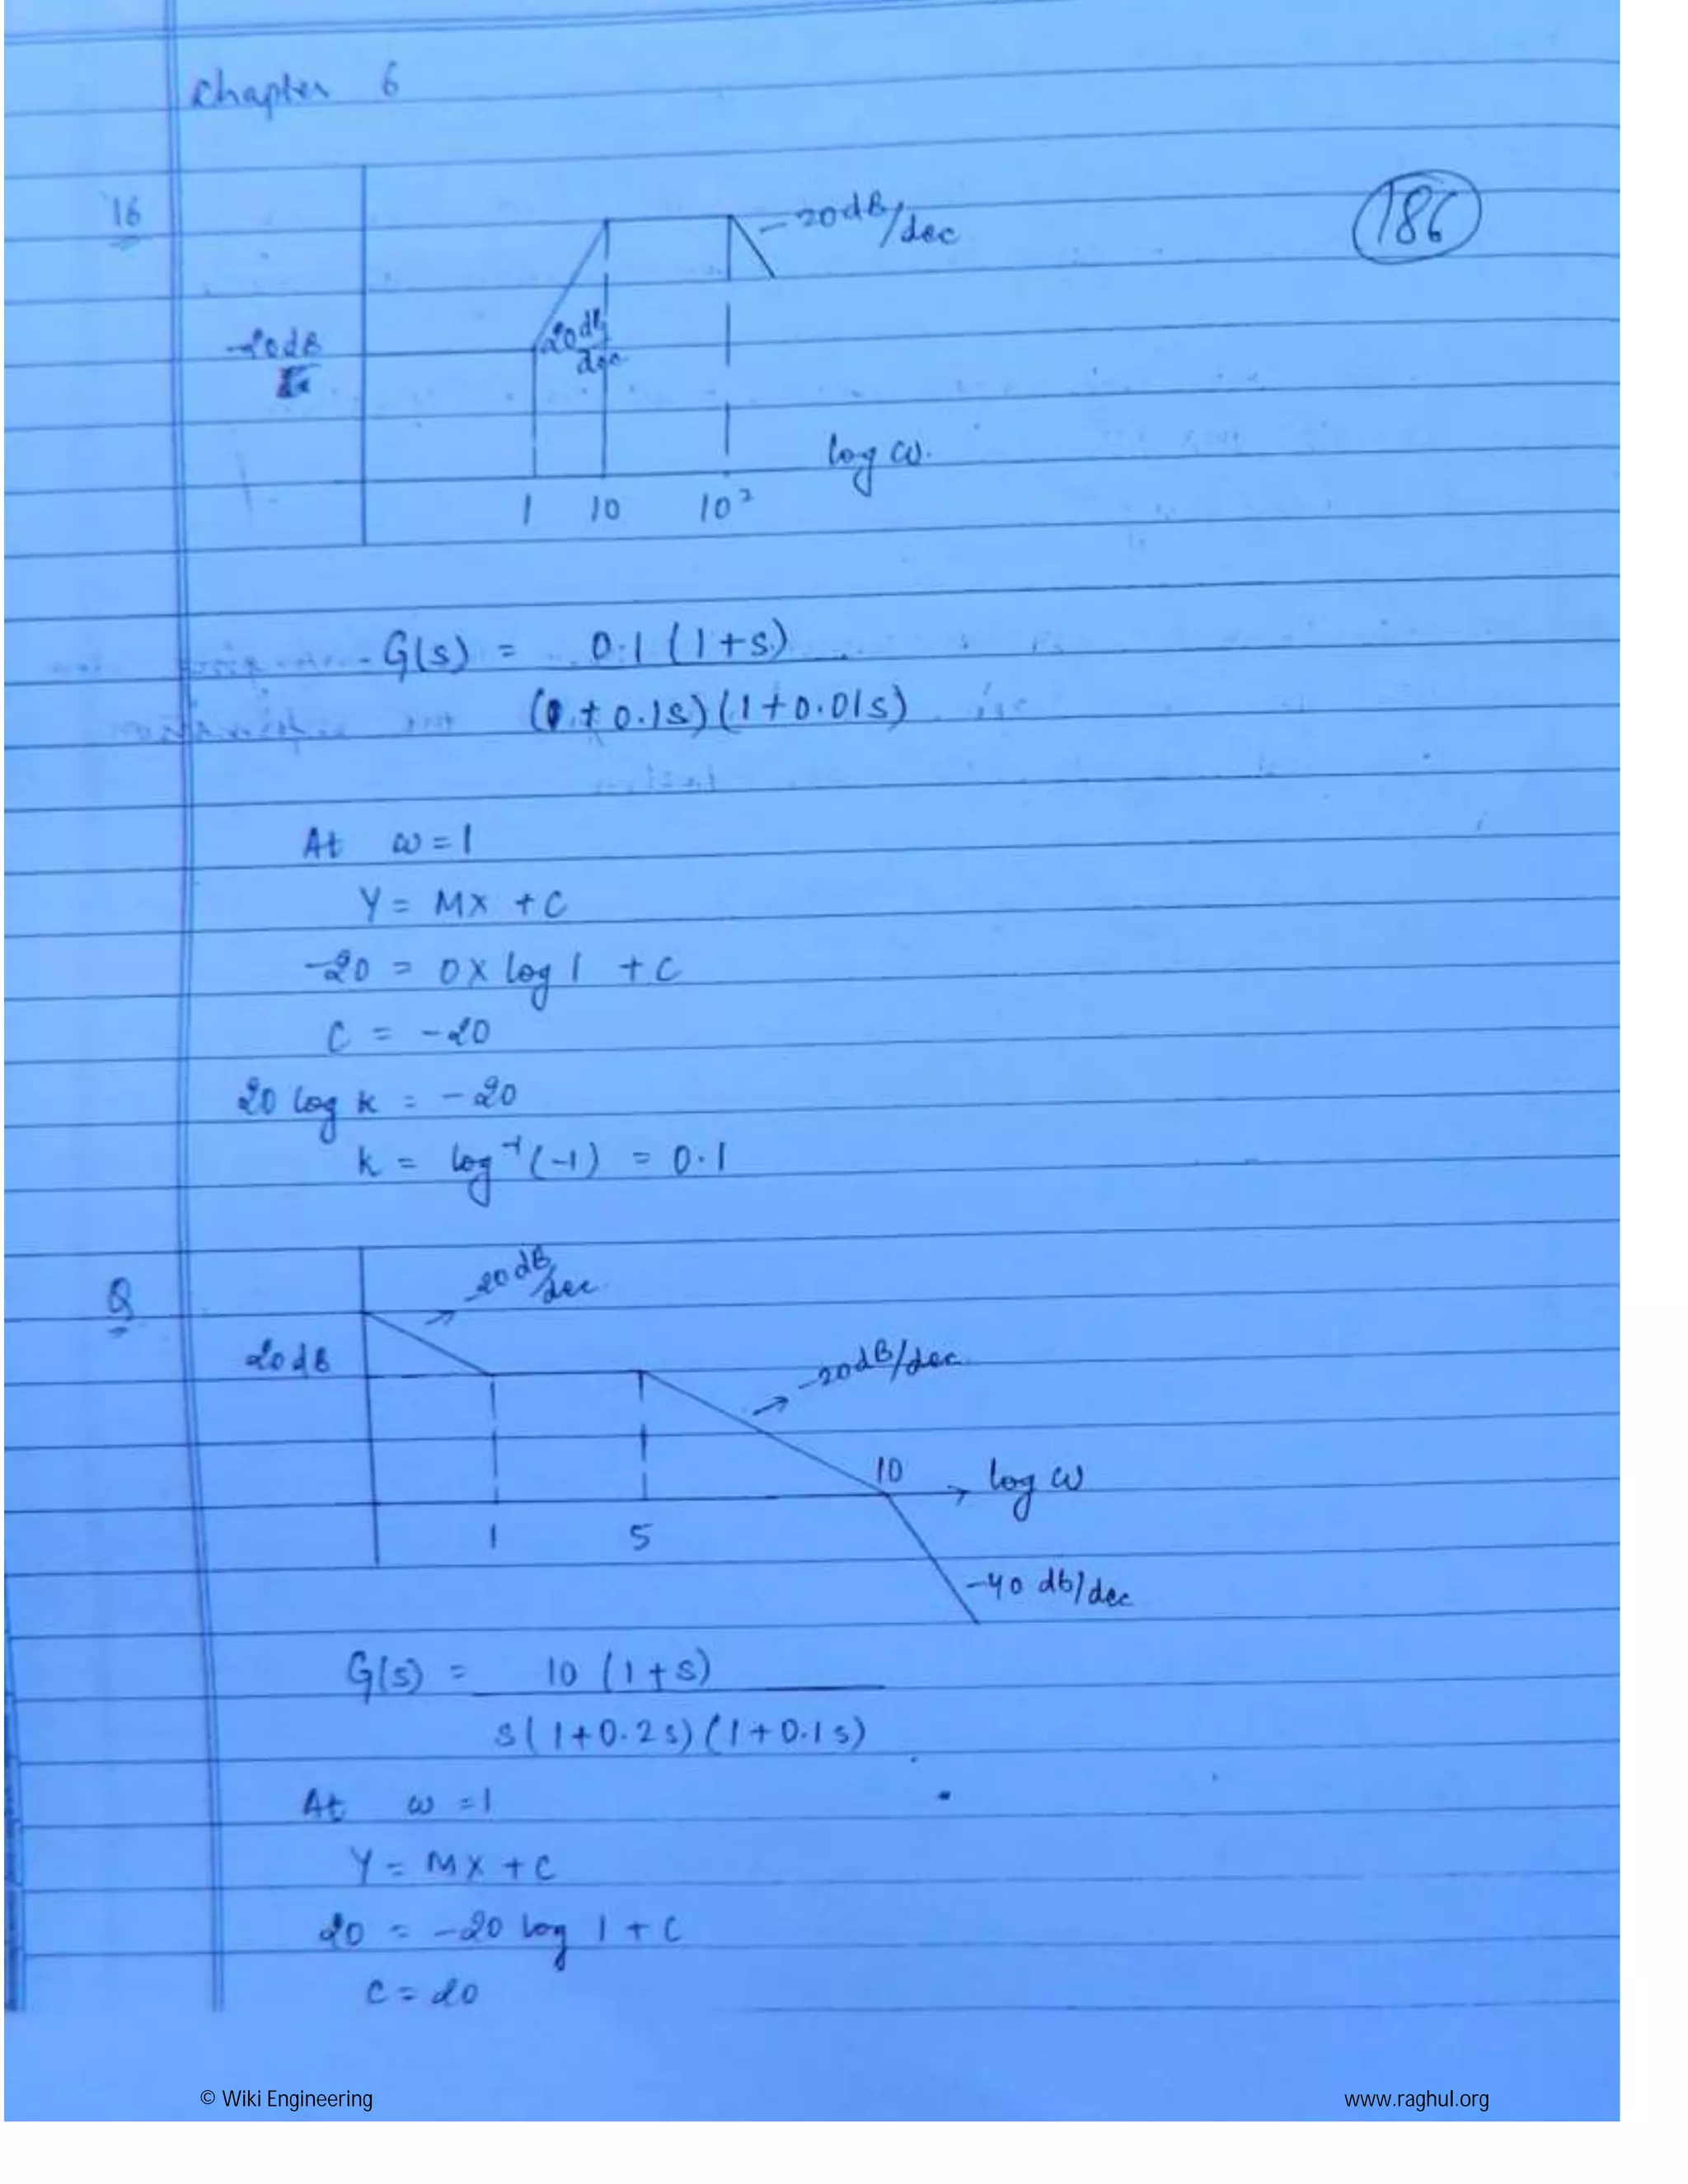 Chapter 6
16
186
-20dB/dec
20db/dec
-20dB
log ω.
1 10 10²
G(s) = 0.1 (1+s)
(1+0.1s)(1+0.01s)
At ω=1
Y = MX + C
-20 = 0X log 1 + C
C = -20
20 log K = -20
K = log⁻¹(-1) = 0.1
Q
-20dB/dec
20dB
-20dB/dec
10
log ω
1 5
-40 db/dec
G(s) = 10 (1+s)
s(1+0.2s)(1+0.1s)
At ω =1
Y = MX + C
20 = -20 log 1 + C
C = 20
© Wiki Engineering
www.raghul.org